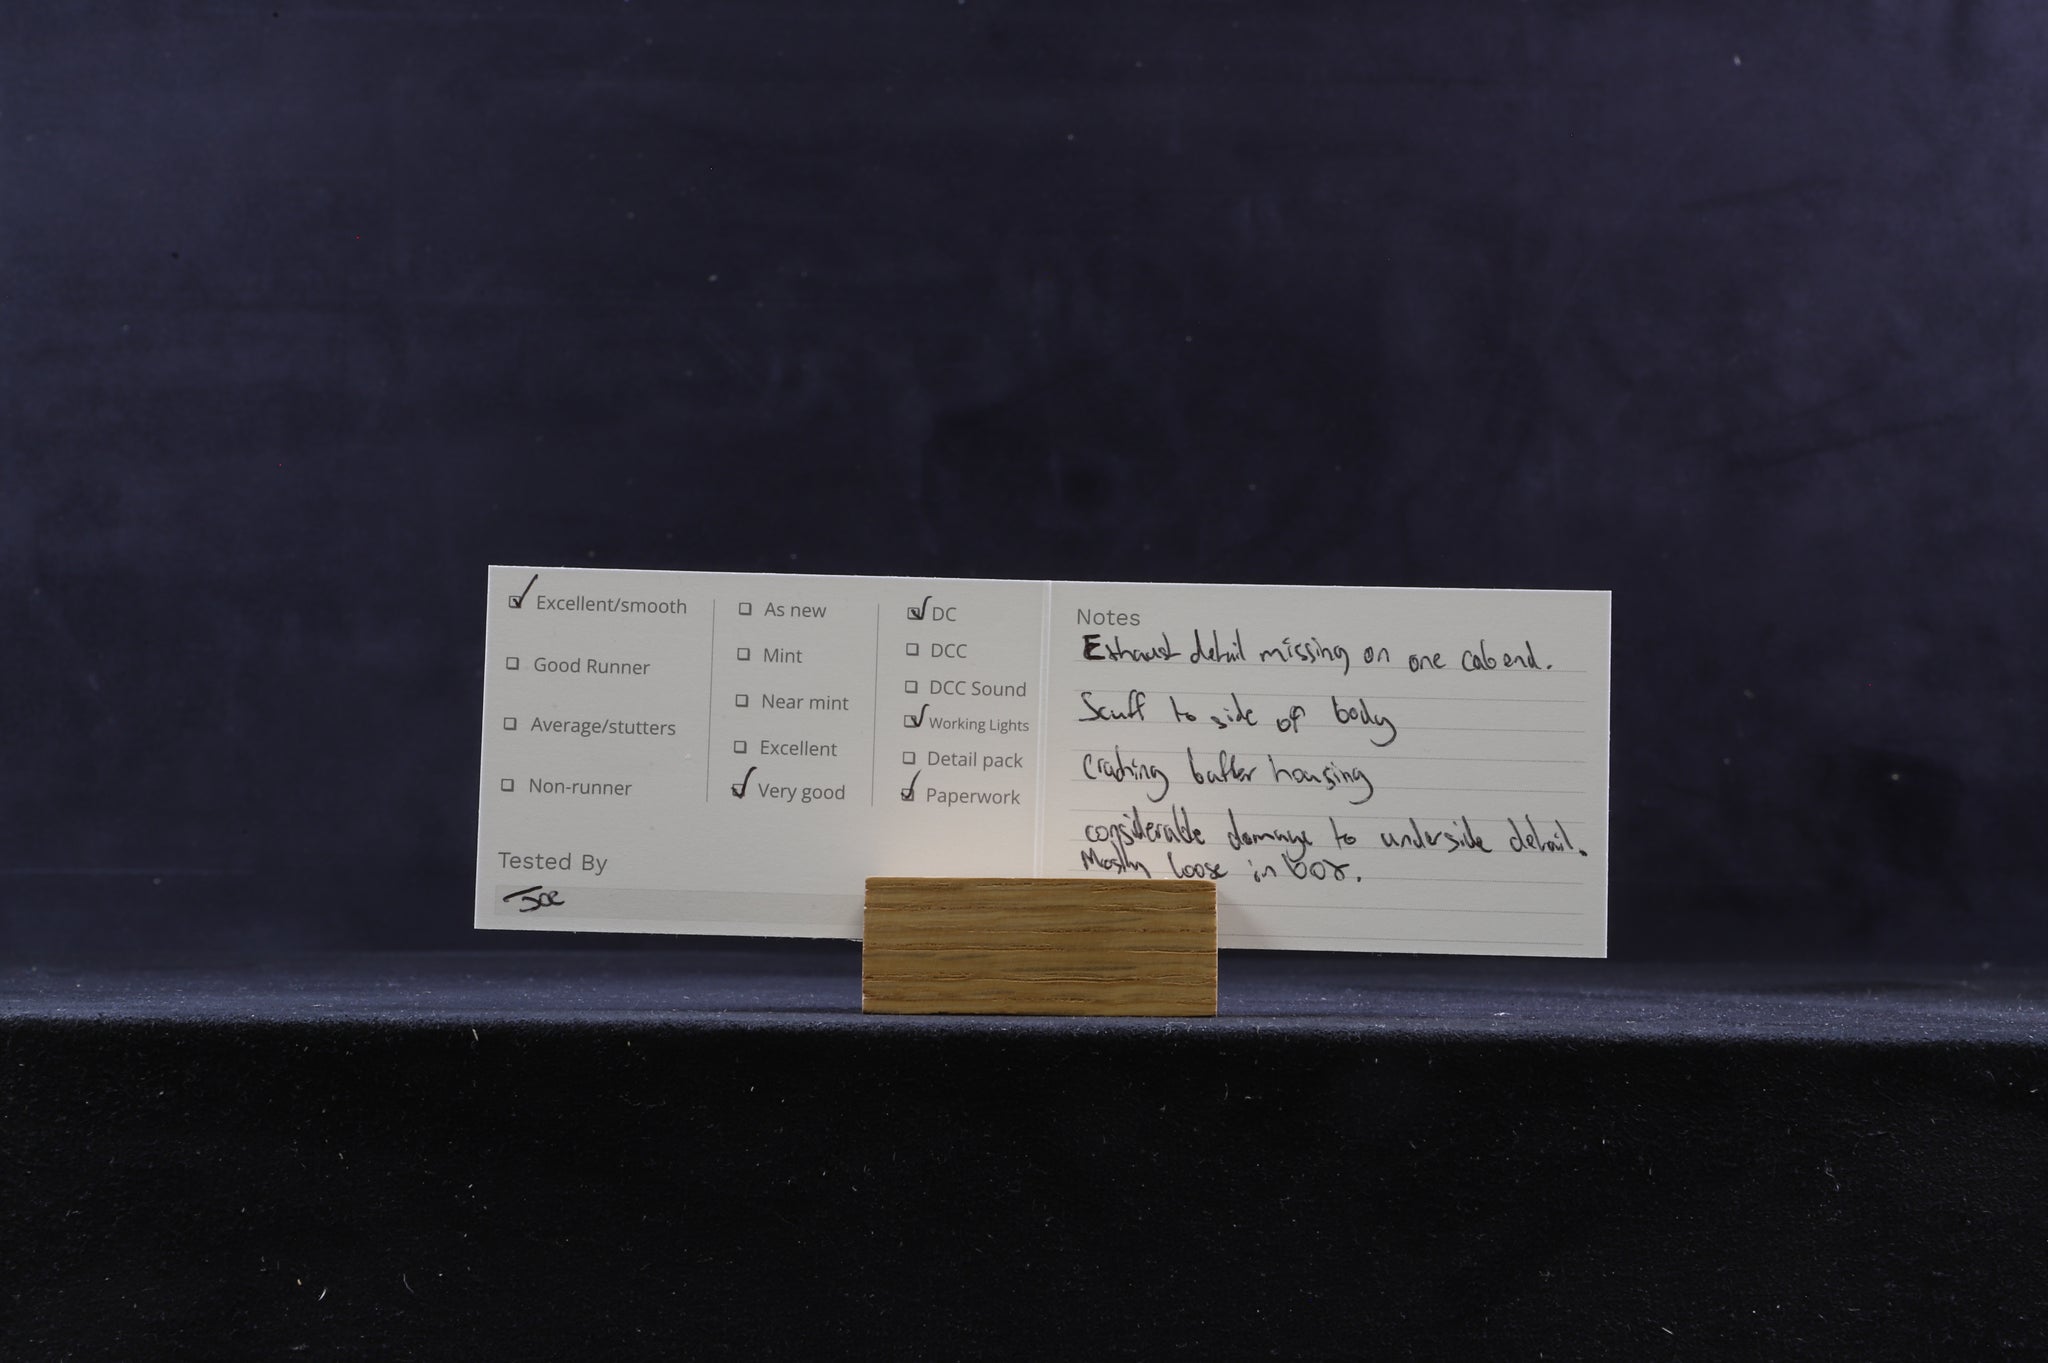 Excellent/smooth
Good Runner
Average/stutters
Non-runner
As new
Mint
Near mint
Excellent
Very good
DC
DCC
DCC Sound
Working Lights
Detail pack
Paperwork
Tested By
Joe
Notes
Exhaust detail missing on one cab end.
Scuff to side of body
housing
considerable damage to underside detail.
Mostly loose in box.